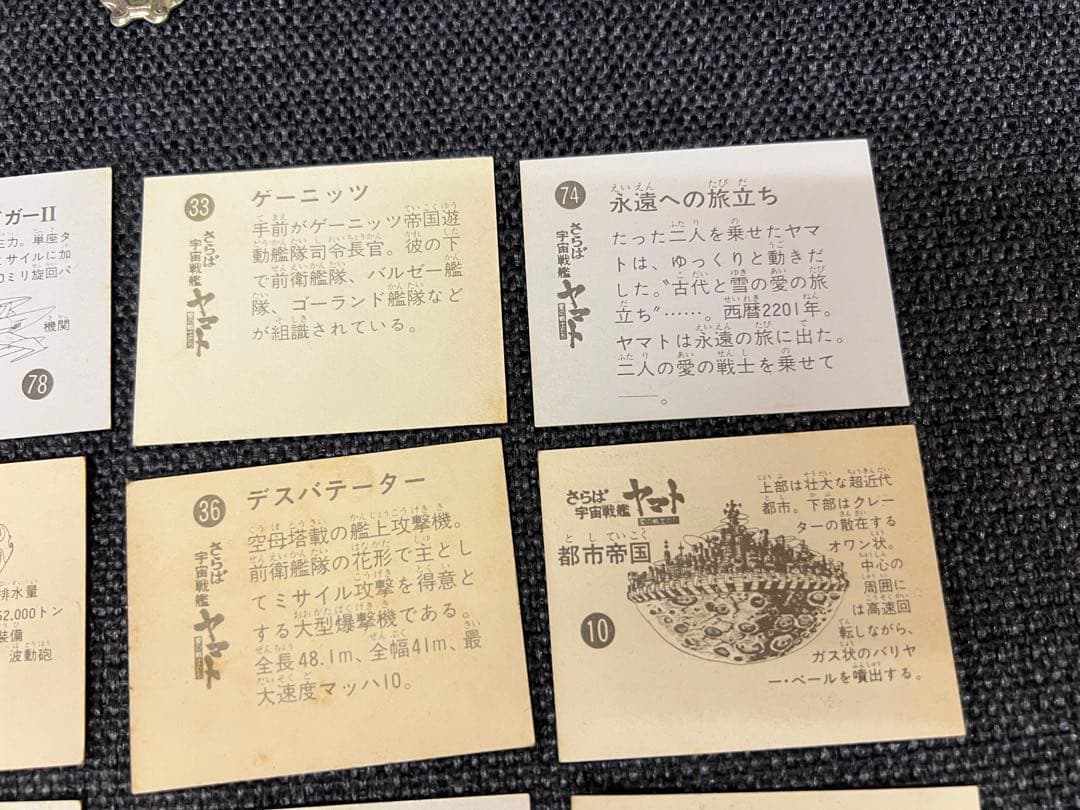 ガーII
力。単座タ
サイルに加
0ミリ旋回バ
機関
78
33
ゲーニッツ
さらば
宇宙戦艦
ヤマト
愛の戦士たち
手前がゲーニッツ帝国遊
動艦隊司令長官。彼の下
で前衛艦隊、バルゼー艦
隊、ゴーランド艦隊など
が組識されている。
74
永遠への旅立ち
さらば
宇宙戦艦
ヤマト
愛の戦士たち
たった二人を乗せたヤマ
トは、ゆっくりと動きだ
した。〝古代と雪の愛の旅
立ち〟……。西暦2201年。
ヤマトは永遠の旅に出た。
二人の愛の戦士を乗せて
――。
排水量
52,000トン
装備
波動砲
36
デスバテーター
さらば
宇宙戦艦
ヤマト
愛の戦士たち
空母塔載の艦上攻撃機。
前衛艦隊の花形で主とし
てミサイル攻撃を得意と
する大型爆撃機である。
全長48.1m、全幅41m、最
大速度マッハ10。
さらば
宇宙戦艦
ヤマト
愛の戦士たち
都市帝国
10
上部は壮大な超近代
都市。下部はクレー
ターの散在する
オワン状。
中心の
周囲に
は高速回
転しながら、
ガス状のバリヤ
ー・ベールを噴出する。